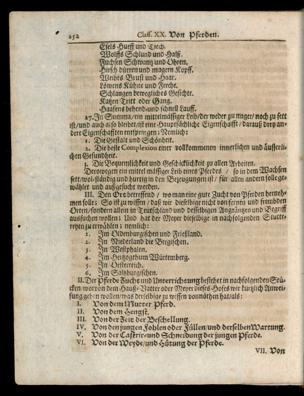 252 Class. XX. Von Pferden.
Esels Hueff und Tiech.
Wolffs Schlund und Halß.
Fuchsen Schwantz und Ohren.
Hirsch dürren und magern Kopff.
Weibes Brust und Haar.
Löwens Kühne und Freche.
Schlangen bewegliches Gesichte.
Katzen Tritt oder Gang.
Haasens behend und schnell Lauff.
In Summa/ein mittelmässiger Leib/der weder zu mager/noch zu fett
ist/und auch also bleibet/ist eine Hauptsächliche Eigenschafft/ darauß drey an-
dere Eigenschafften entspringen; Nemlich:
1. Die Gestalt und Schönheit.
2. Die beste Complexion einer vollkommenen innerlichen und äusserli-
chen Gesundheit.
3. Die Bequemlichkeit und Geschicklichkeit zu allen Arbeiten.
Derowegen ein mittel mässiger Leib eines Pferdes / so in dem Wachsen
wählet und außgesucht werden.
III. Den Ort betreffend / wo man eine gute Zucht von Pferden herneh-
men solle; So ist zu wissen / daß wir dieselbige nicht von fernen und frembden
Orten/sondern allein in Teutschland und desselbigen Angräntzen
nachfolgenden
zu erzählen; nemlich:
1. Im Oldenburgischen und Frießland.
2. Im Niederland die Bergischen.
3. In Westphalen.
4. Im Hertzogthum Würtemberg.
5. In Oesterreich.
6. Im Saltzburgischen.
II. Der Pferde Zucht und Unterrichtung bestehet in nachfolgenden Stü-
cken: worvon dem Hauß-Vatter oder Meyer dieses Hofes wir kürtzlich Anwei-
sung geben wollen/was derselbige zu wissen vonnöthen hat/als:
I. Von dem Mutter Pferd.
II. Von dem Hengst.
III. Von der Zeit der Beschellung.
IV. Von den jungen Fohlen oder Füllen/und derselben Wartung.
V. Von der Castrir- und Schneidung der jungen Pferde.
VI. Von der Weyde/und Hütung der Pferde.
VII. Von